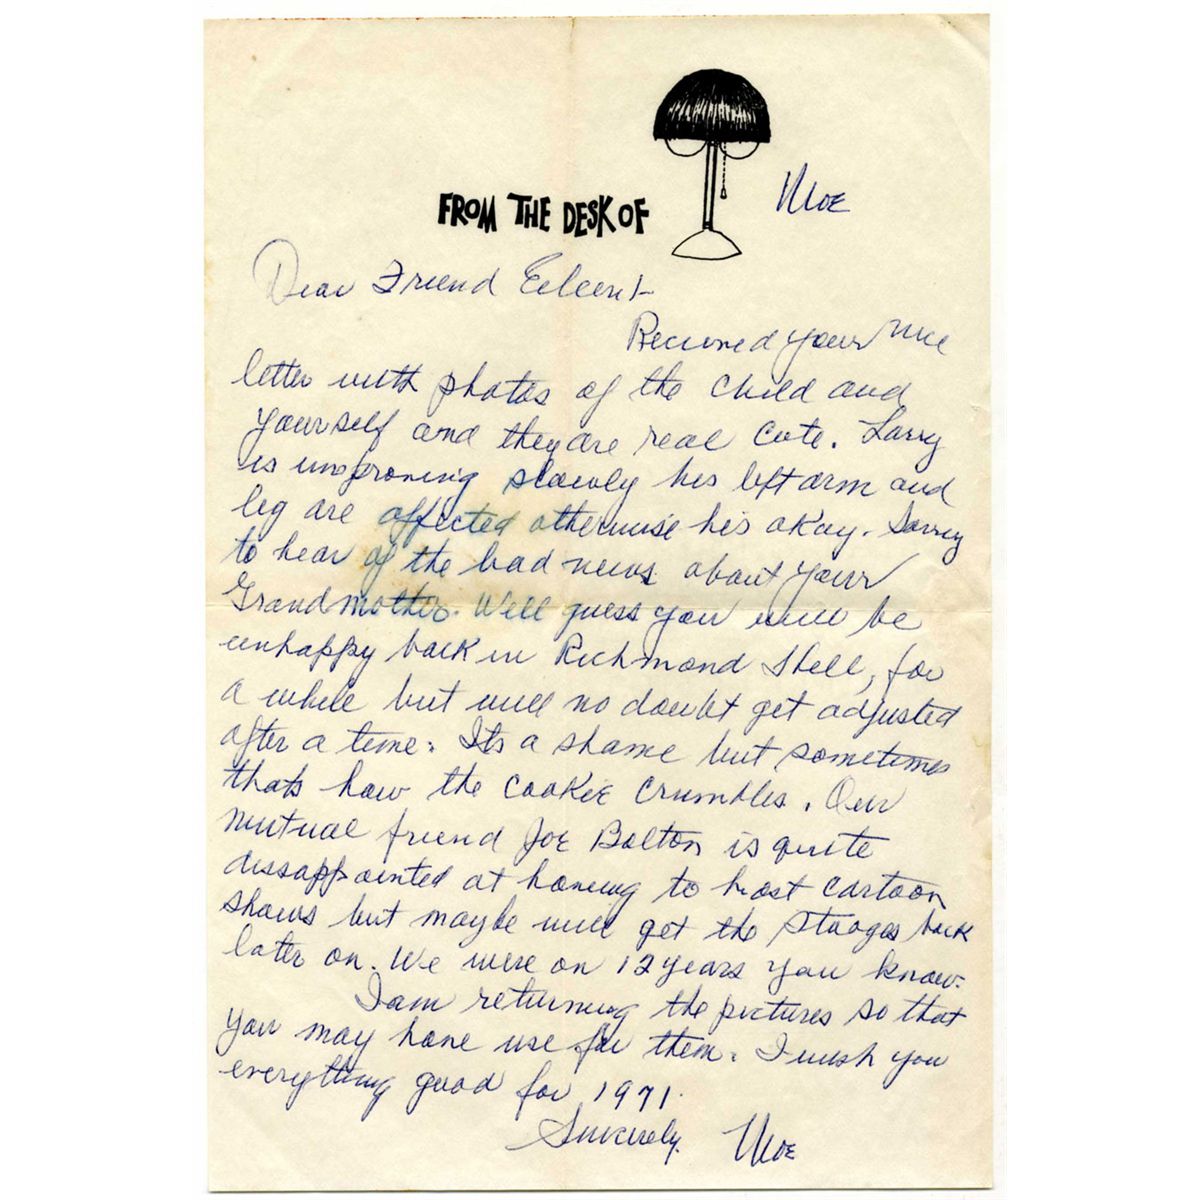 FROM THE DESK OF Moe
Dear Friend Eileen:-
Received your nice
letter with photos of the child and
yourself and they are real cute. Larry
is improving slowly his left arm and
leg are affected otherwise he's okay. Sorry
to hear of the bad news about your
Grandmother. Well guess you will be
unhappy back in Richmond Hill, for
a while but will no doubt get adjusted
after a time. Its a shame but sometimes
thats how the cookie crumbles. Our
mutual friend Joe Bolton is quite
dissappointed at having to host cartoon
shows but maybe will get the Stooges back
later on. We were on 12 years you know.
I am returning the pictures so that
you may have use for them. I wish you
everything good for 1971.
Sincerely. Moe